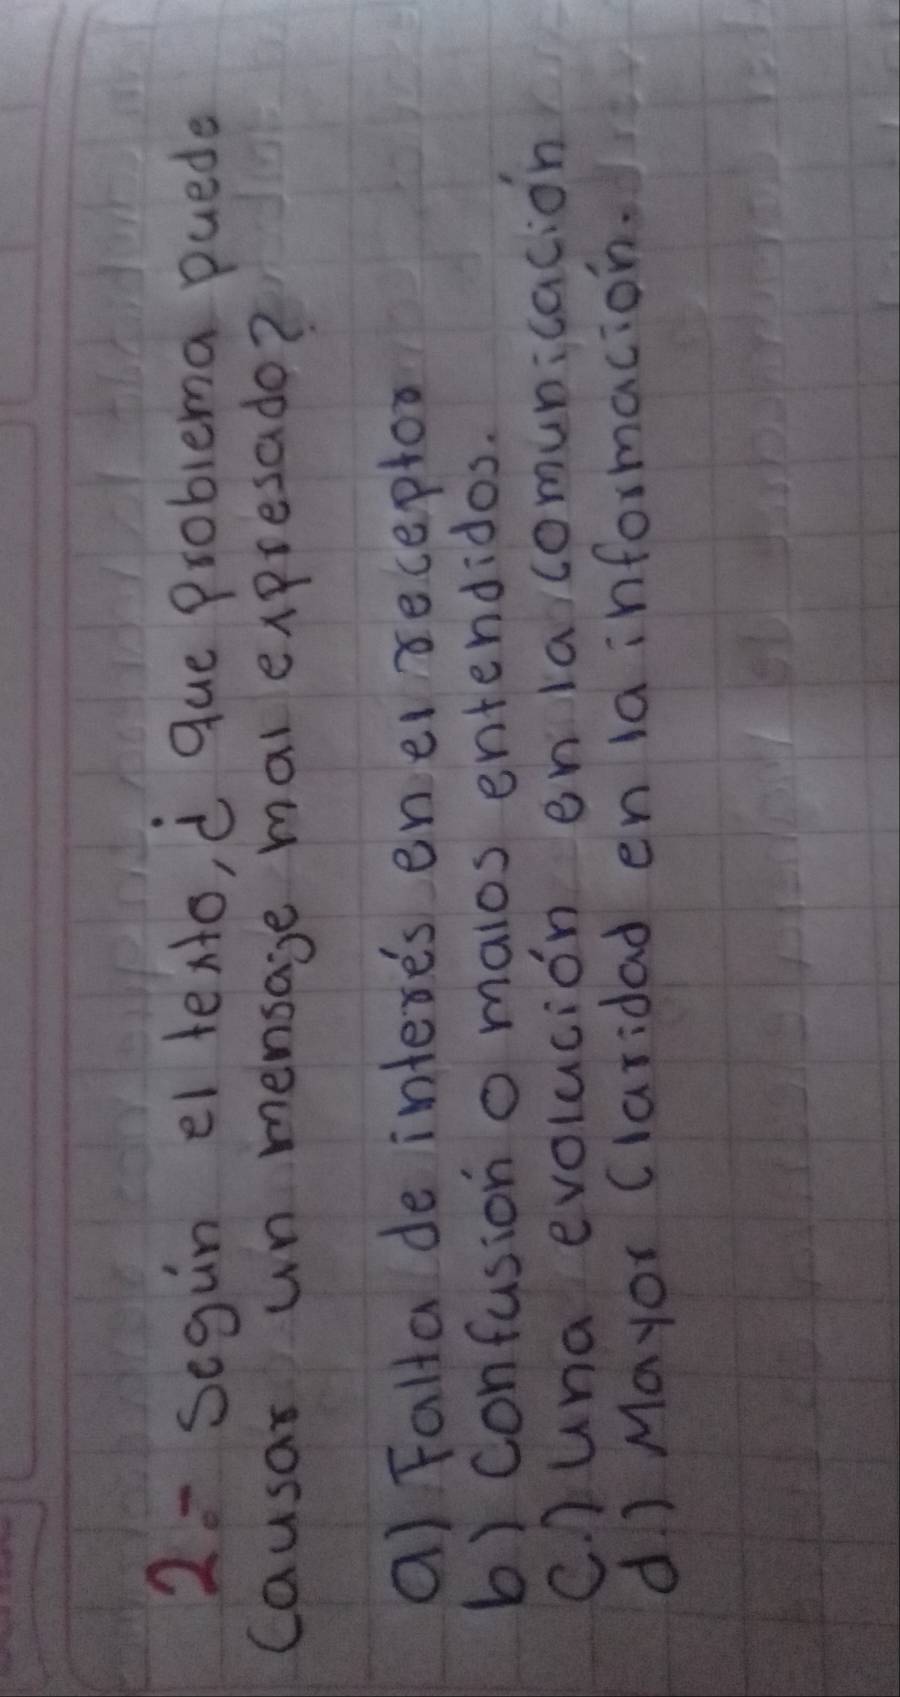 2.- Según el texto, ¿ que problema puede
causar un mensaje mal expresado?
a) Falta de interés en el receptor
b) Confusión o malos entendidos.
c.) una evolución en la comunicación
d.) Mayor claridad en la información.